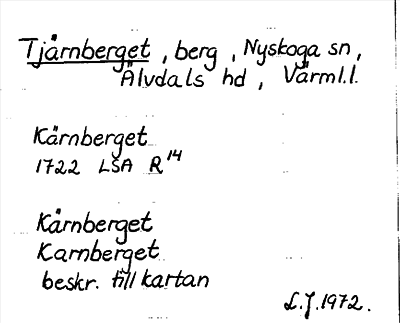 Tjärnberget, berg, Nyskoga sn,
Älvdals hd, Värml.l.
Kärnberget
1722 LSA R¹⁴
Kårnberget
Karnberget
beskr. till kartan
L.J. 1972.